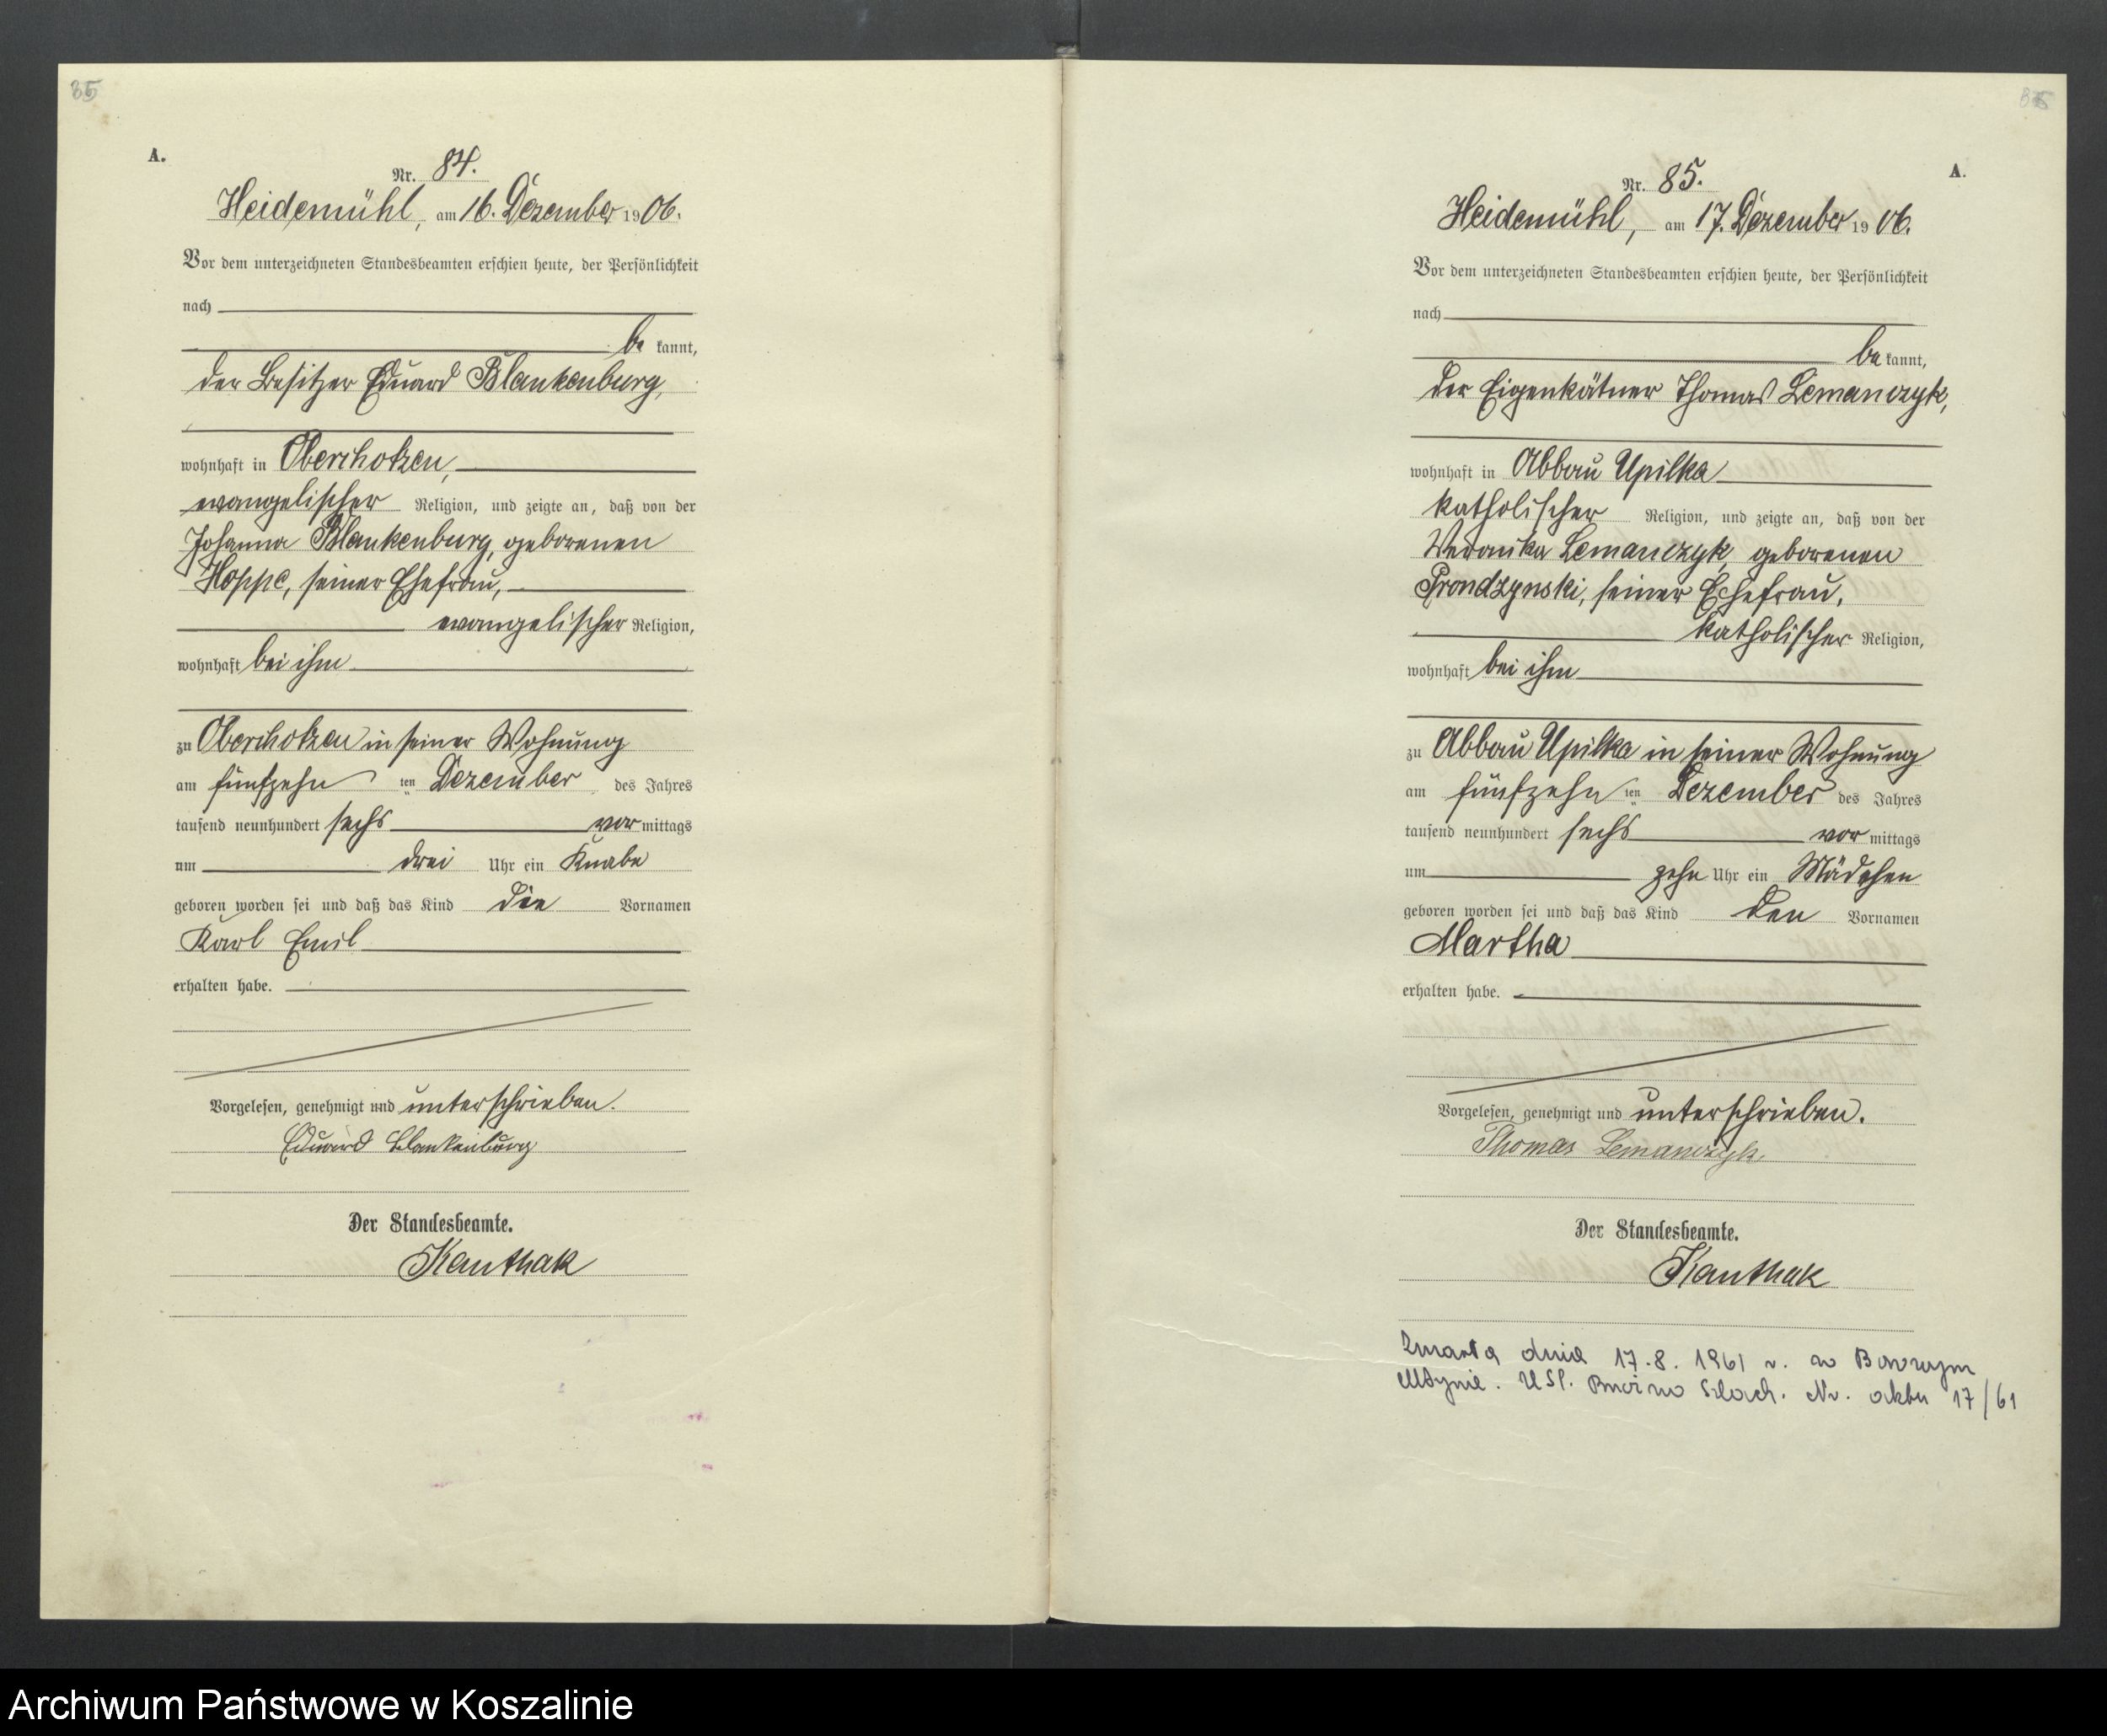 85
A.
Nr. 84.
Heidemühl, am 16. Dezember 1906.
Vor dem unterzeichneten Standesbeamten erschien heute, der Persönlichkeit
nach
be kannt,
der Besitzer Eduard Blankenburg,
wohnhaft in Oberchotzen,
evangelischer Religion, und zeigte an, daß von der
Johanna Blankenburg, geborenen
Hoppe, seiner Ehefrau,
evangelischer Religion,
wohnhaft bei ihm
zu Oberchotzen in seiner Wohnung
am fünfzehn ten Dezember des Jahres
tausend neunhundert sechs vor mittags
um drei Uhr ein Knabe
geboren worden sei und daß das Kind die Vornamen
Karl Emil
erhalten habe.
Vorgelesen, genehmigt und unterschrieben.
Eduard Blankenburg
Der Standesbeamte.
Kanthak
A.
Nr. 85.
Heidemühl, am 17. Dezember 1906.
Vor dem unterzeichneten Standesbeamten erschien heute, der Persönlichkeit
nach
be kannt,
der Eigenkätner Thomas Lemanczyk,
wohnhaft in Abbau Upilka
katholischer Religion, und zeigte an, daß von der
Weronika Lemanczyk, geborenen
Prondzynski, seiner Ehefrau,
katholischer Religion,
wohnhaft bei ihm
zu Abbau Upilka in seiner Wohnung
am fünfzehn ten Dezember des Jahres
tausend neunhundert sechs vor mittags
um zehn Uhr ein Mädchen
geboren worden sei und daß das Kind den Vornamen
Martha
erhalten habe.
Vorgelesen, genehmigt und unterschrieben.
Thomas Lemanczyk.
Der Standesbeamte.
Kanthak
Zmarła dnia 17.8.1961 r. w Borowym
Młynie. USC. Brzeźno Szlach. Nr. aktu 17/61
Archiwum Państwowe w Koszalinie